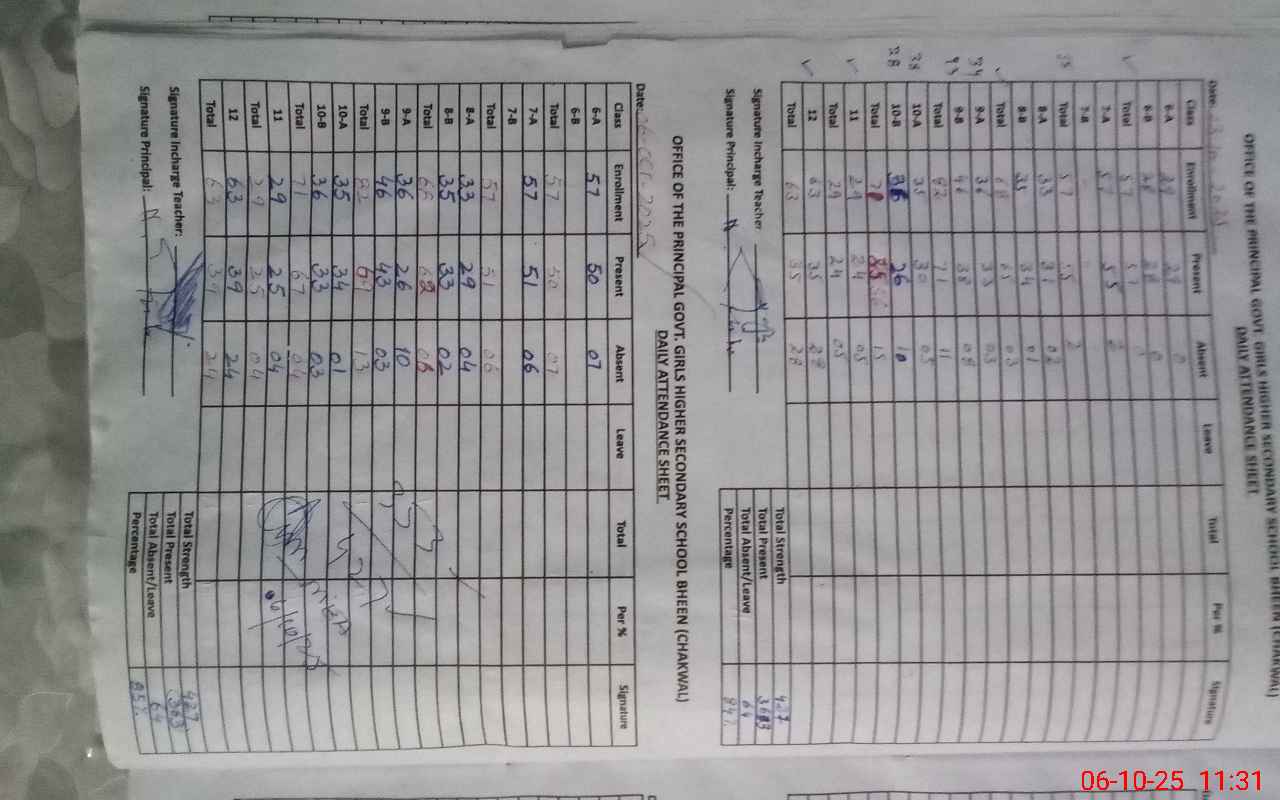 OFFICE OF THE PRINCIPAL GOVT. GIRLS HIGHER SECONDARY SCHOOL BHEEN (CHAKWAL)
DAILY ATTENDANCE SHEET
Date:
Class Enrollment Present Absent Leave Total Per % Signature
6-A 29 29 0
6-B 28 28 0
Total 57 57
7-A 57 55 2
7-B
Total 57 55 2
8-A 33 31 02
8-B 35 34 01
Total 68 65 03
9-A 36 33 03
9-B 46 38 08
Total 82 71 11
10-A 35 30 05
10-B 36 26 10
Total 71 56 15
11 29 24 05
Total 29 24 05
12 63 35 28
Total 63 35 28
34
43
38
28
Signature Incharge Teacher:
Signature Principal:
Total Strength 427
Total Present 363
Total Absent/Leave 64
Percentage 84%
OFFICE OF THE PRINCIPAL GOVT. GIRLS HIGHER SECONDARY SCHOOL BHEEN (CHAKWAL)
DAILY ATTENDANCE SHEET
Date: 06-OCT-2025
Class Enrollment Present Absent Leave Total Per % Signature
6-A 57 50 07
6-B
Total 57 50 07
7-A 57 51 06
7-B
Total 57 51 06
8-A 33 29 04
8-B 35 33 02
Total 68 62 06
9-A 36 26 10
9-B 46 43 03
Total 82 69 13
10-A 35 34 01
10-B 36 33 03
Total 71 67 04
11 29 25 04
Total 29 25 04
12 63 39 24
Total 63 39 24
Signature Incharge Teacher:
Signature Principal:
Total Strength 427
Total Present 363
Total Absent/Leave 64
Percentage 85%
06-10-25 11:31